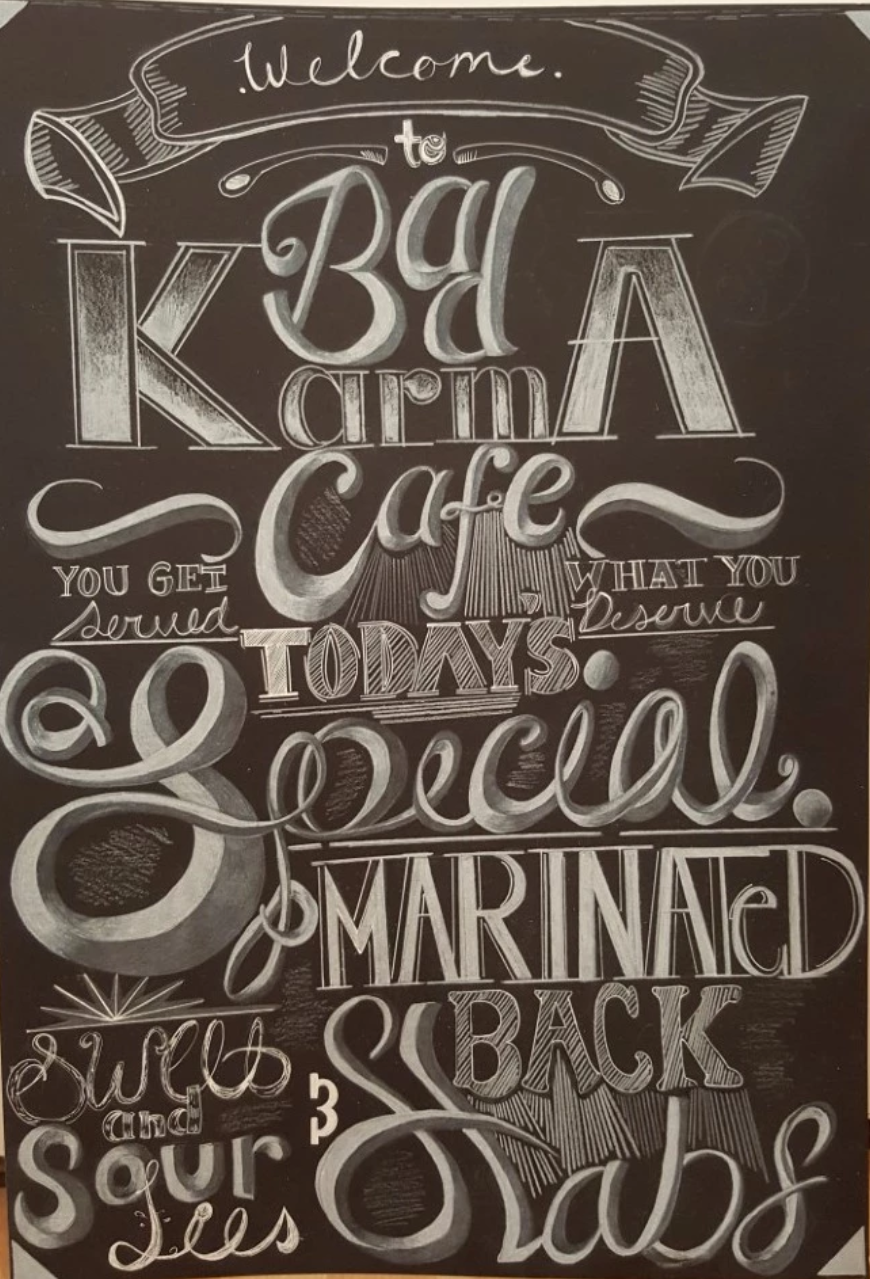 .Welcome.
to
Bad
KarmA
Cafe
YOU GET
Served
WHAT YOU
Deserve
TODAY'S
Special.
MARINATeD
BACK
Stabs
&
Sweet
and
Sour
Lies